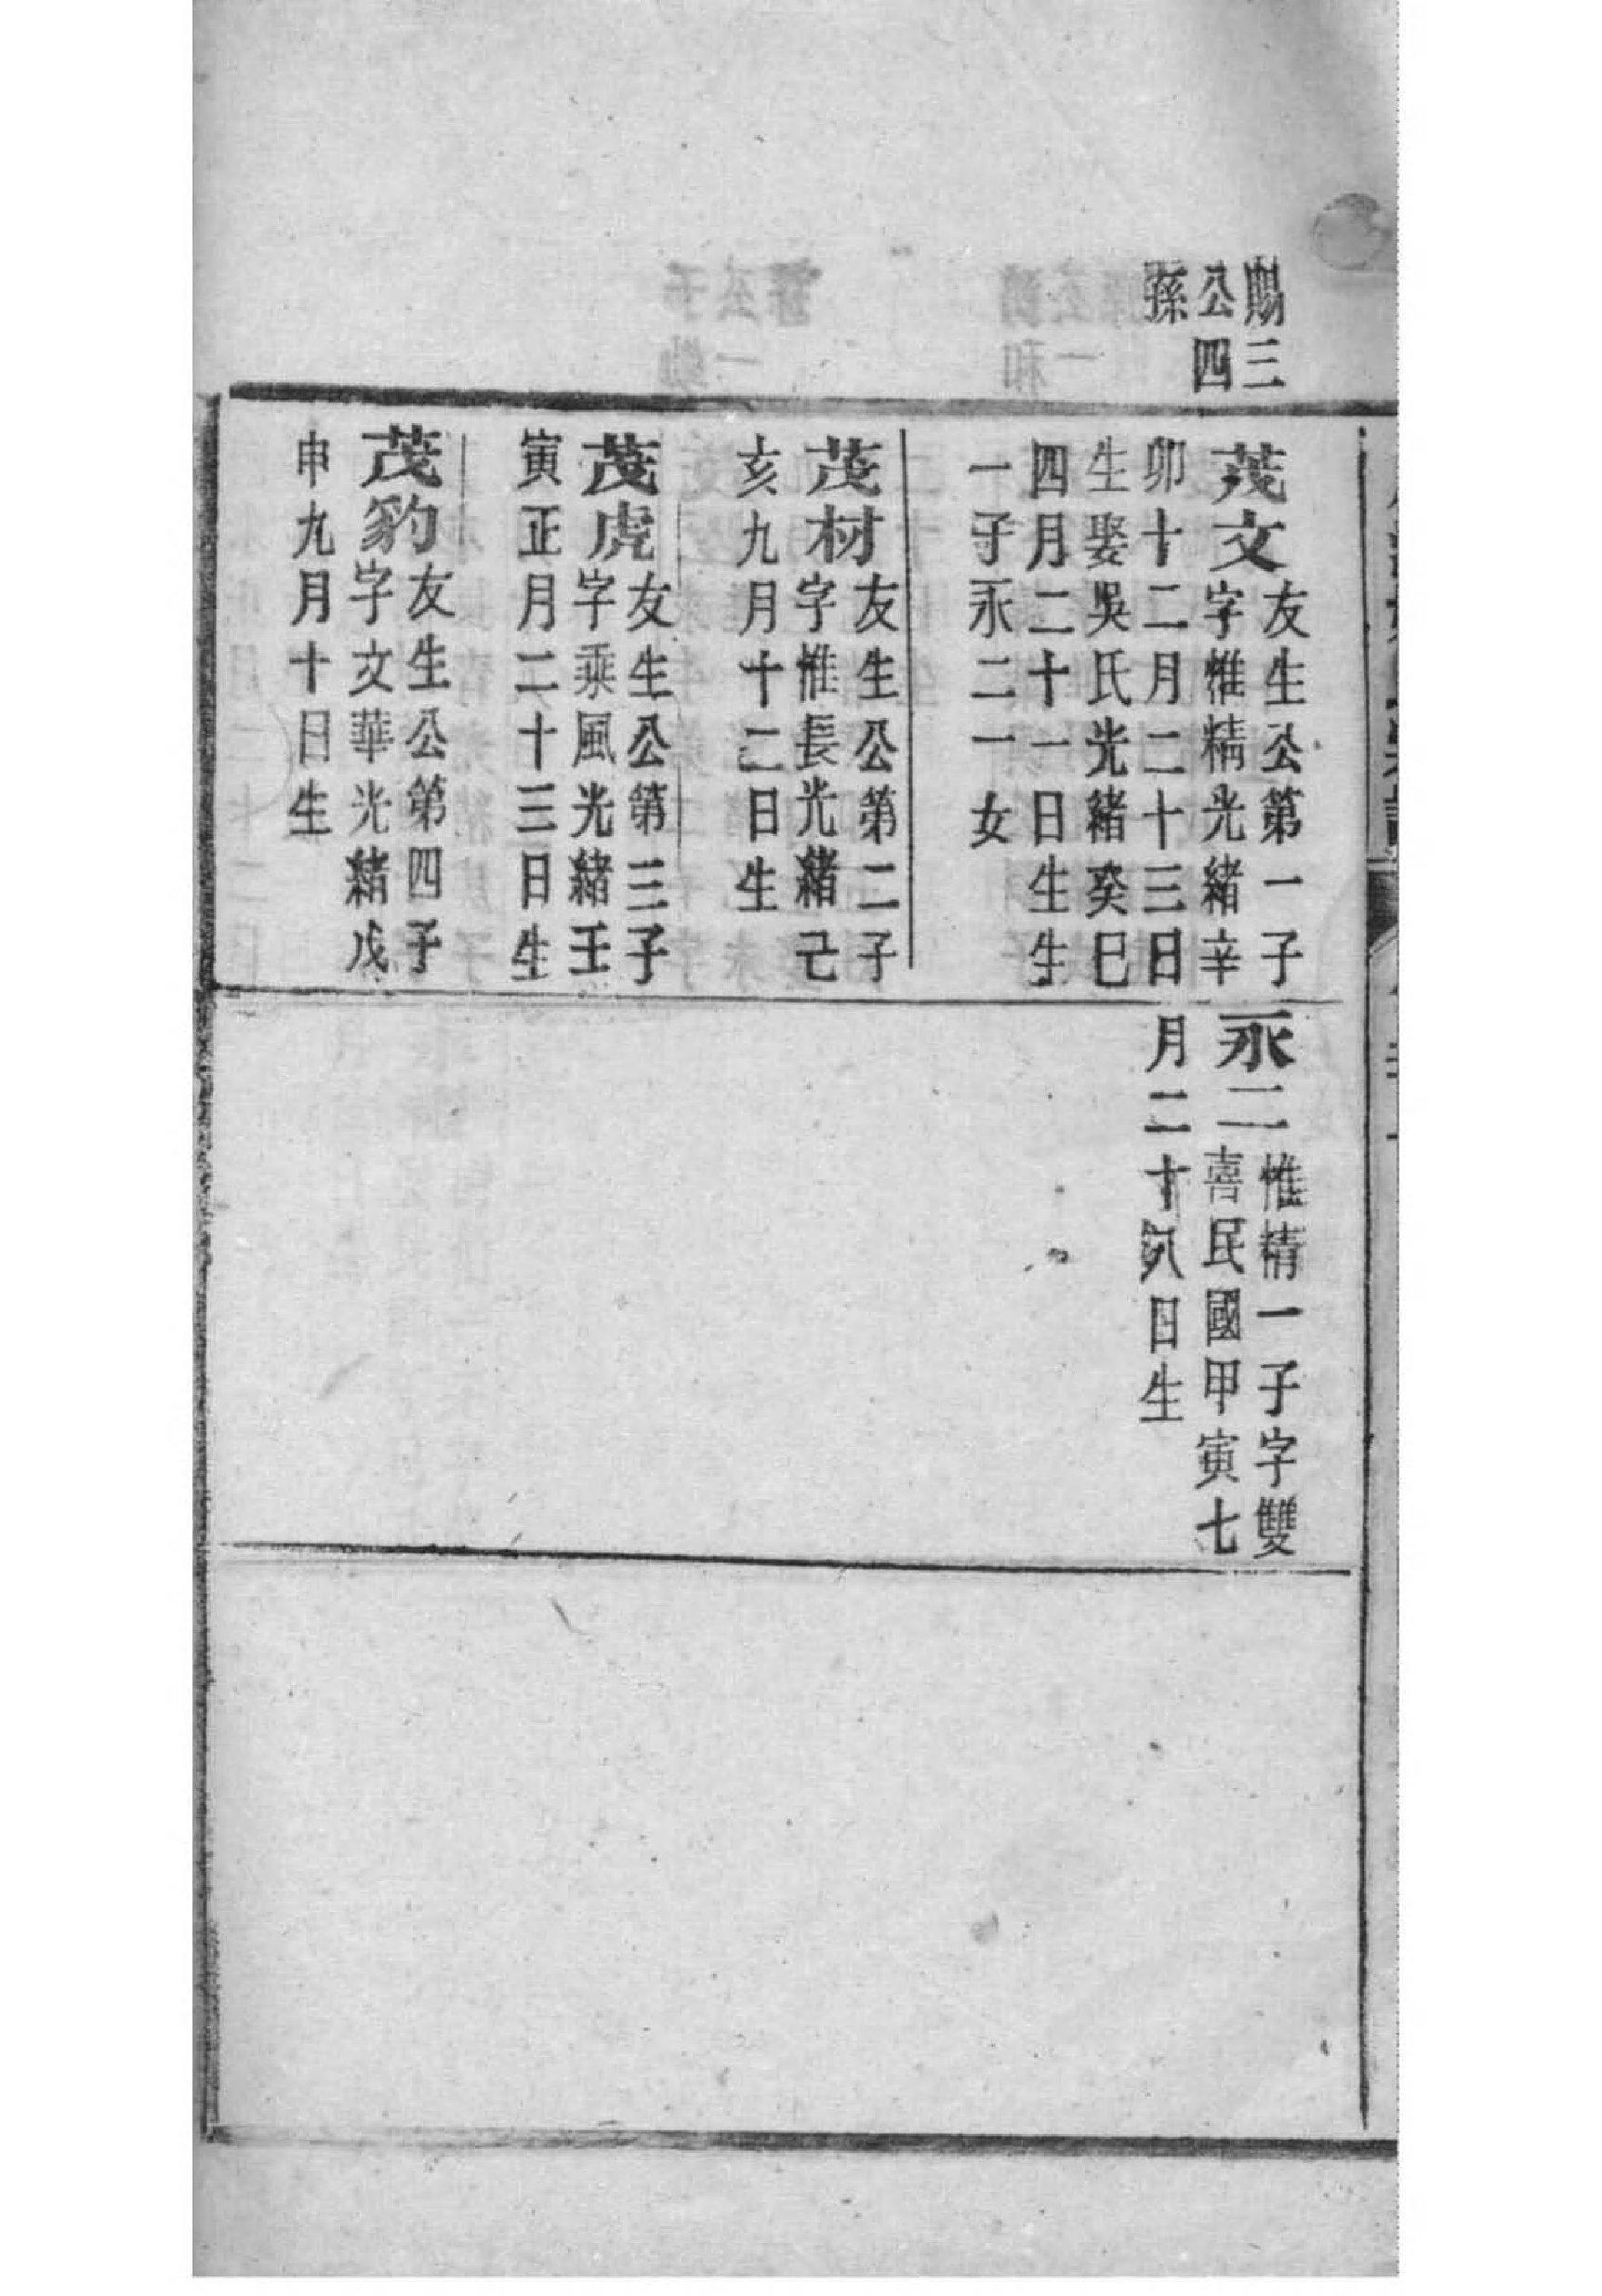 賜三
公四
孫
茂文友生公第一子
字惟精光緒辛
卯十二月二十三日
生娶吳氏光緒癸巳
四月二十一日生生
一子永二一女
茂材友生公第二子
字惟長光緒己
亥九月十二日生
茂虎友生公第三子
字乘風光緒壬
寅正月二十三日生
茂豹友生公第四子
字文華光緒戊
申九月十日生
永二惟精一子字雙
喜民國甲寅七
月二十八日生